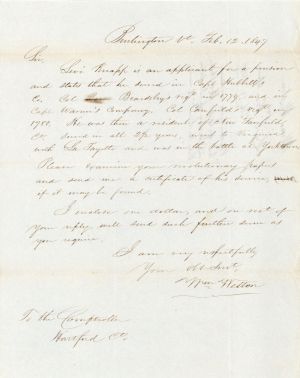 Burlington Vt. Feb. 12. 1847
Sir,
Levi Knapp is an applicant for a pension
and states that he served in Capt Hubbell's
Co. Col Beardsley's regt in 1779, and in
Capt Warren's Company, Col. Canfield's regt in
1780. He was then a resident of New Fairfield
Co. served in all 2 1/2 years, went to Virginia
with La Fayette and was in the battle at Yorktown
Please examine your revolutionary papers
and send me a certificate of his service,
if it may be found.
I enclose one dollar, and on rect of
your reply will send such further sum as
you require.
I am very respectfully
Your Obt Servt.
Wm Weston
To the Comptroller
Hartford Ct.